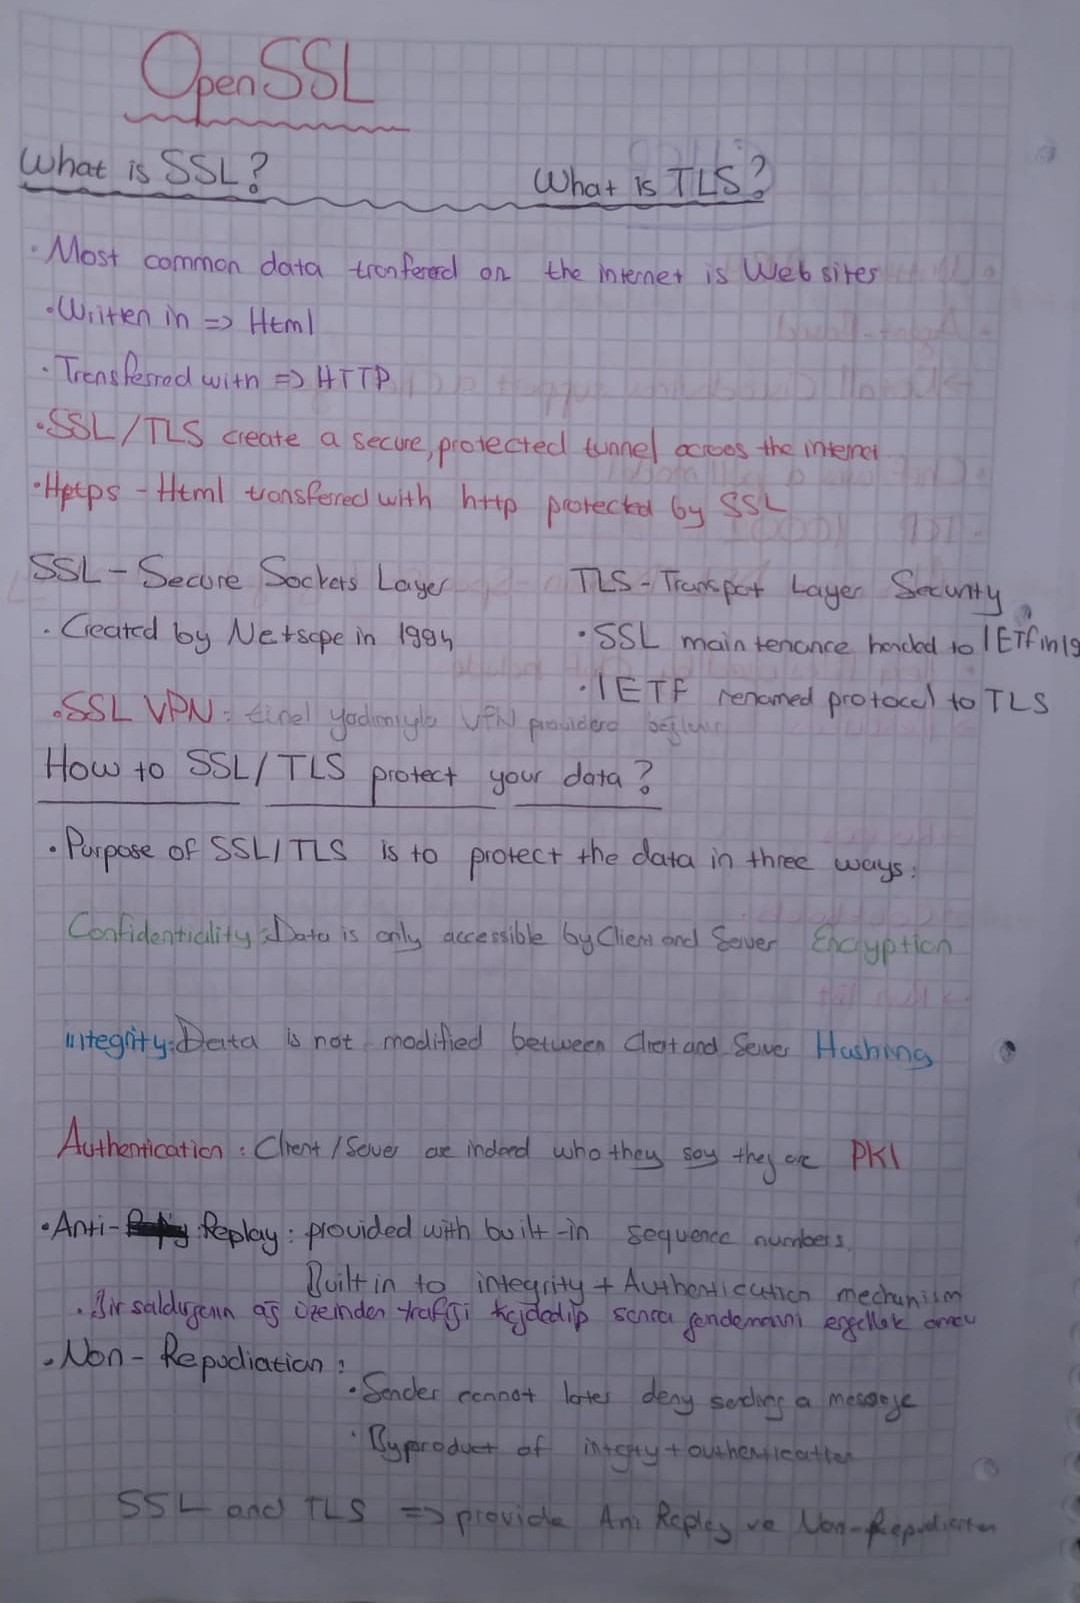 OpenSSL
What is SSL? What is TLS?
· Most common data tronfered on the internet is Web sites
· Written in => Html
· Transferred with => HTTP
· SSL/TLS create a secure, protected tunnel across the internet
· Https - Html transferred with http protected by SSL
SSL - Secure Sockets Layer
· Created by Netscpe in 1994
TLS - Transport Layer Security
· SSL maintenance handed to IETF in 19
· IETF renamed protocol to TLS
· SSL VPN: tünel yadımıyla VPN providera bağlanır
How to SSL/TLS protect your data?
· Purpose of SSL/TLS is to protect the data in three ways:
Confidentiality: Data is only accessible by Client and Server Encryption
integrity: Data is not modified between Client and Server Hashing
Authentication: Client/Server are indeed who they say they are PKI
· Anti- Replay: provided with built-in sequence numbers
Built in to integrity + Authentication mechanism
· Bir saldırganın ağ üzeinden trafiği kaydedip sonra göndermesini engellemek amacı
· Non-Repudiation:
· Sender cannot later deny sending a message
· Byproduct of integrity + authentication
SSL and TLS => provide Ani Replay ve Non-Repudiation